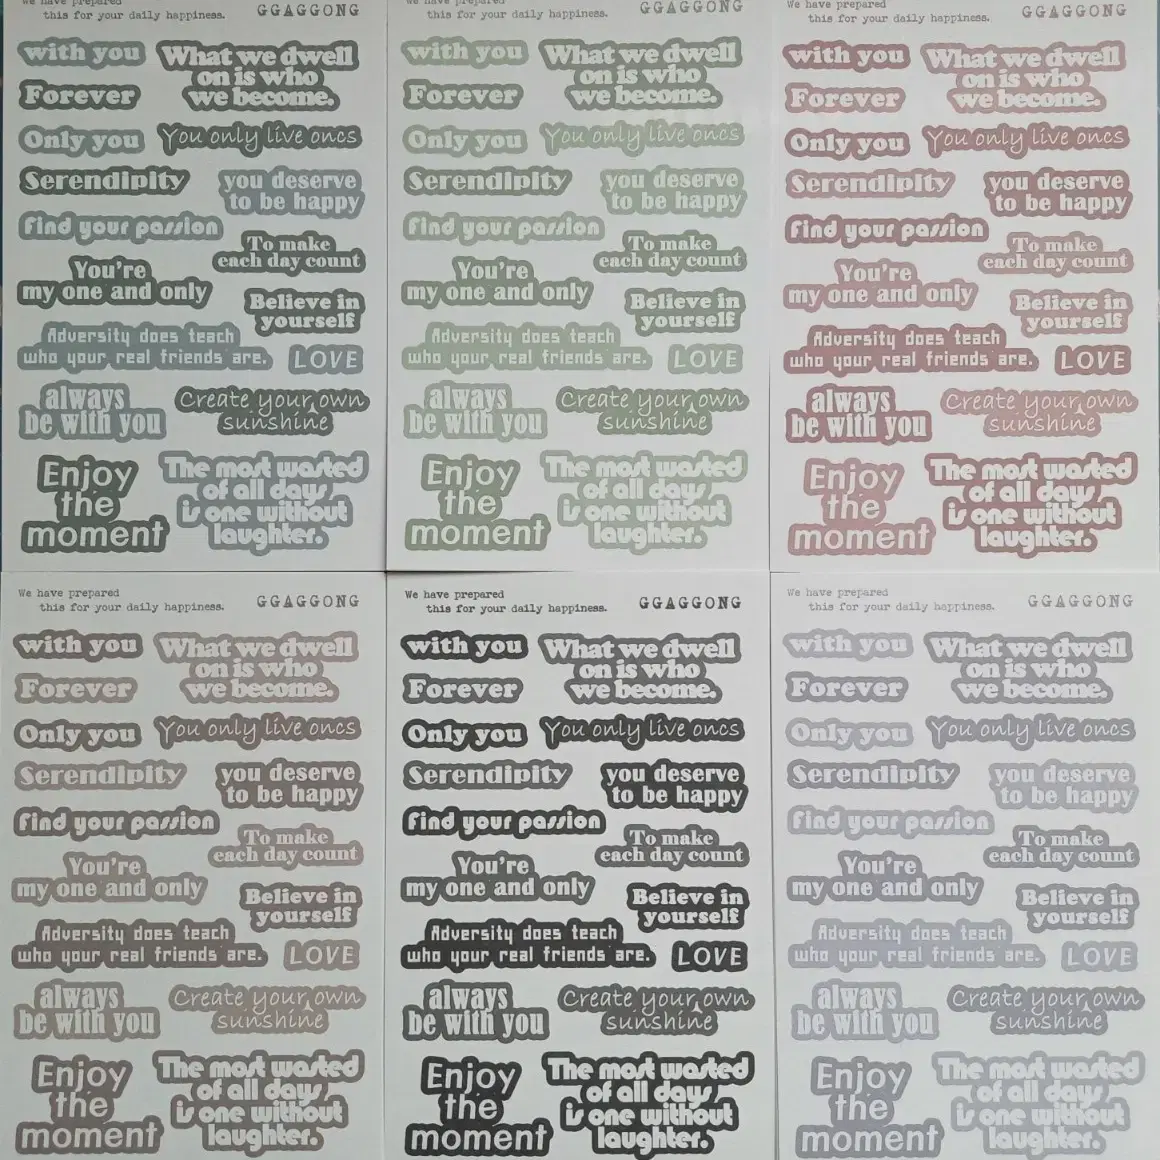 We have prepared
this for your daily happiness.
GGAGGONG
with you
What we dwell
on is who
we become.
Forever
Only you
You only live oncs
Serendipity
you deserve
to be happy
find your passion
To make
each day count
You're
my one and only
Believe in
yourself
Adversity does teach
who your real friends are.
LOVE
always
be with you
Create your own
sunshine
Enjoy
the
moment
The most wasted
of all days
is one without
laughter.
We have prepared
this for your daily happiness.
GGAGGONG
with you
What we dwell
on is who
we become.
Forever
Only you
You only live oncs
Serendipity
you deserve
to be happy
find your passion
To make
each day count
You're
my one and only
Believe in
yourself
Adversity does teach
who your real friends are.
LOVE
always
be with you
Create your own
sunshine
Enjoy
the
moment
The most wasted
of all days
is one without
laughter.
We have prepared
this for your daily happiness.
GGAGGONG
with you
What we dwell
on is who
we become.
Forever
Only you
You only live oncs
Serendipity
you deserve
to be happy
find your passion
To make
each day count
You're
my one and only
Believe in
yourself
Adversity does teach
who your real friends are.
LOVE
always
be with you
Create your own
sunshine
Enjoy
the
moment
The most wasted
of all days
is one without
laughter.
We have prepared
this for your daily happiness.
GGAGGONG
with you
What we dwell
on is who
we become.
Forever
Only you
You only live oncs
Serendipity
you deserve
to be happy
find your passion
To make
each day count
You're
my one and only
Believe in
yourself
Adversity does teach
who your real friends are.
LOVE
always
be with you
Create your own
sunshine
Enjoy
the
moment
The most wasted
of all days
is one without
laughter.
We have prepared
this for your daily happiness.
GGAGGONG
with you
What we dwell
on is who
we become.
Forever
Only you
You only live oncs
Serendipity
you deserve
to be happy
find your passion
To make
each day count
You're
my one and only
Believe in
yourself
Adversity does teach
who your real friends are.
LOVE
always
be with you
Create your own
sunshine
Enjoy
the
moment
The most wasted
of all days
is one without
laughter.
We have prepared
this for your daily happiness.
GGAGGONG
with you
What we dwell
on is who
we become.
Forever
Only you
You only live oncs
Serendipity
you deserve
to be happy
find your passion
To make
each day count
You're
my one and only
Believe in
yourself
Adversity does teach
who your real friends are.
LOVE
always
be with you
Create your own
sunshine
Enjoy
the
moment
The most wasted
of all days
is one without
laughter.